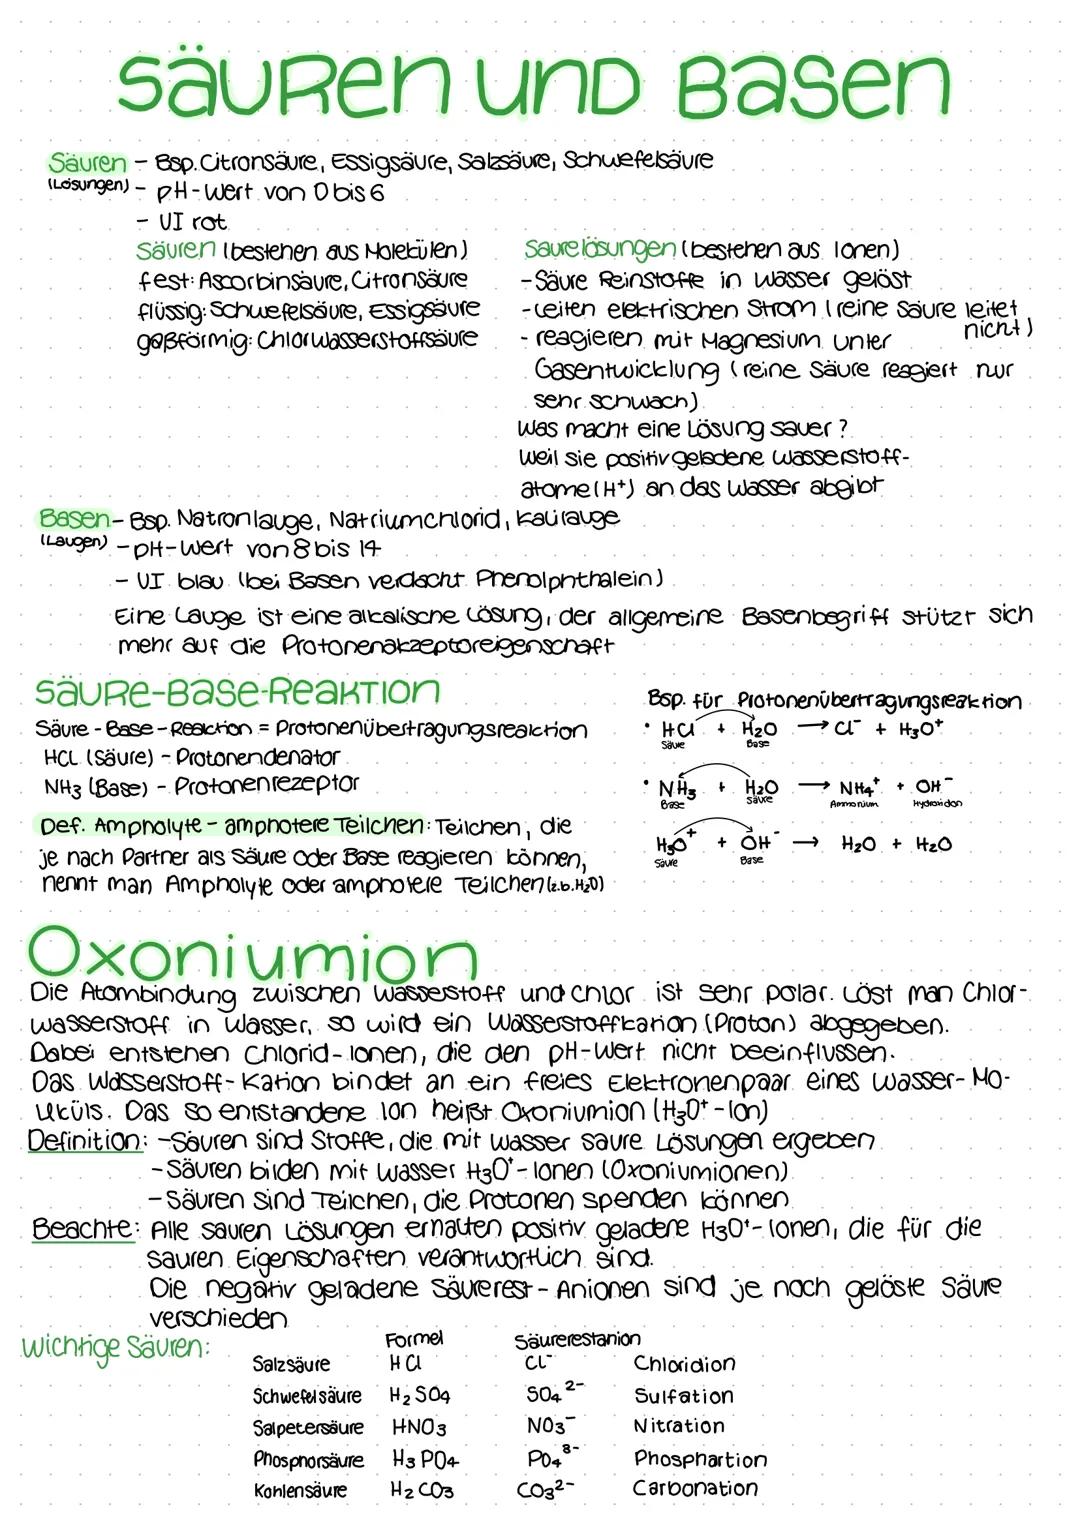 Säuren und Basen
Säuren - Bsp. Citronsäure, Essigsäure, Salzsäure, Schwefelsäure
(Lösungen) - pH-Wert von 0 bis 6
- UI rot
Säuren (bestehen aus Molekülen)
fest: Ascorbinsäure, Citronsäure
flüssig: Schwefelsäure, Essigsäure
gasförmig: Chlorwasserstoffsäure
Saurelösungen (bestehen aus Ionen)
- Säure Reinstoffe in Wasser gelöst
- Leiten elektrischen Strom (reine Säure leitet nicht)
- reagieren mit Magnesium unter
Gasentwicklung (reine Säure reagiert nur
sehr schwach)
Was macht eine Lösung sauer?
Weil sie positiv geladene Wasserstoff-
atome (H⁺) an das Wasser abgibt
Basen - Bsp. Natronlauge, Natriumchlorid, Kalilauge
(Laugen) - pH-Wert von 8 bis 14
- UI blau (bei Basen verdacht Phenolphthalein)
Eine Lauge ist eine alkalische Lösung, der allgemeine Basenbegriff stützt sich
mehr auf die Protonenakzeptoreigenschaft
Säure-Base-Reaktion
Säure-Base-Reaktion = Protonenübertragungsreaktion
HCL (Säure) - Protonendenator
NH3 (Base) - Protonenrezeptor
Def. Ampholyte - amphotere Teilchen: Teilchen, die
je nach Partner als Säure oder Base reagieren können,
nennt man Ampholyte oder amphotere Teilchen (z.b. H₂O)
Bsp. für Protonenübertragungsreaktion
• HCl + H₂O → Cl⁻ + H₃O⁺
Säure Base
• NH₃ + H₂O → NH₄⁺ + OH⁻
Base Säure Ammonium Hydroxidon
H₃O⁺ + OH⁻ → H₂O + H₂O
Säure Base
Oxoniumion
Die Atombindung zwischen Wasserstoff und Chlor ist sehr polar. Löst man Chlor-
wasserstoff in Wasser, so wird ein Wasserstoffkation (Proton) abgegeben.
Dabei entstehen Chlorid-Ionen, die den pH-Wert nicht beeinflussen.
Das Wasserstoff-Kation bindet an ein freies Elektronenpaar eines Wasser-Mo-
leküls. Das so entstandene Ion heißt Oxoniumion (H₃O⁺-Ion)
Definition: - Säuren sind Stoffe, die mit Wasser saure Lösungen ergeben
- Säuren bilden mit Wasser H₃O⁺-Ionen (Oxoniumionen)
- Säuren sind Teilchen, die Protonen spenden können
Beachte: Alle sauren Lösungen erhalten positiv geladene H₃O⁺-Ionen, die für die
sauren Eigenschaften verantwortlich sind.
Die negativ geladene Säurerest-Anionen sind je nach gelöste Säure
verschieden
Wichtige Säuren:
Formel Säurerestanion
Salzsäure HCl CL⁻ Chloridion
Schwefelsäure H₂SO₄ SO₄²⁻ Sulfation
Salpetersäure HNO₃ NO₃⁻ Nitration
Phosphorsäure H₃PO₄ PO₄³⁻ Phosphartion
Kohlensäure H₂CO₃ CO₃²⁻ Carbonation